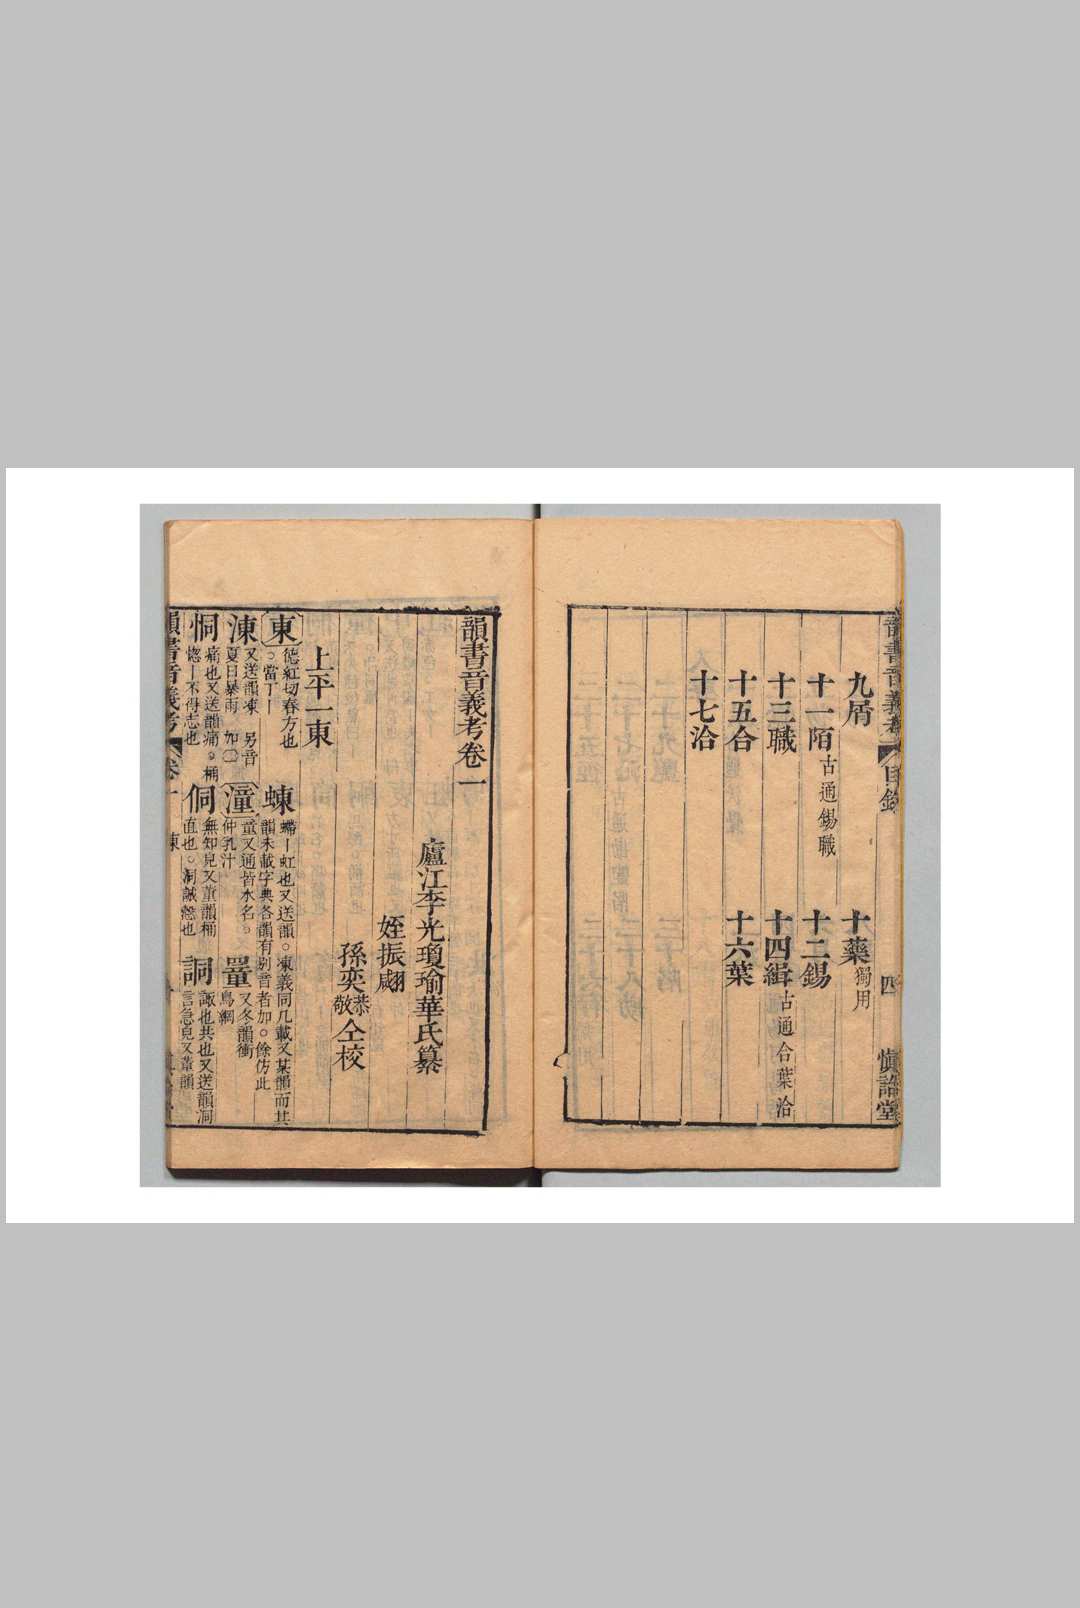 九屑　十藥獨用
十一陌古通錫職　十二錫
十三職　十四緝古通合葉洽
十五合　十六葉
十七洽
韻書音義考　目錄　四　慎詒堂
韻書音義考卷一
廬江李光瓊瑜華氏纂
姪振翽
孫奕恭敬仝校
上平一東
東德紅切春方也。當丁丨　蝀螮丨虹也又送韻。凍義同凡載又某韻而其韻未載字典各韻有別音者加。餘仿此
涷又送韻凍　另音夏日暴雨　加〇　潼童又通皆水名。仲乳汁　罿又冬韻衝鳥綱
恫痛也又送韻痛。桶惚丨不得志也　侗無知皃又董韻桶直也。洞誠慤也　詷諏也共也又送韻洞言急皃又董韻
韻書音義考　卷一　東